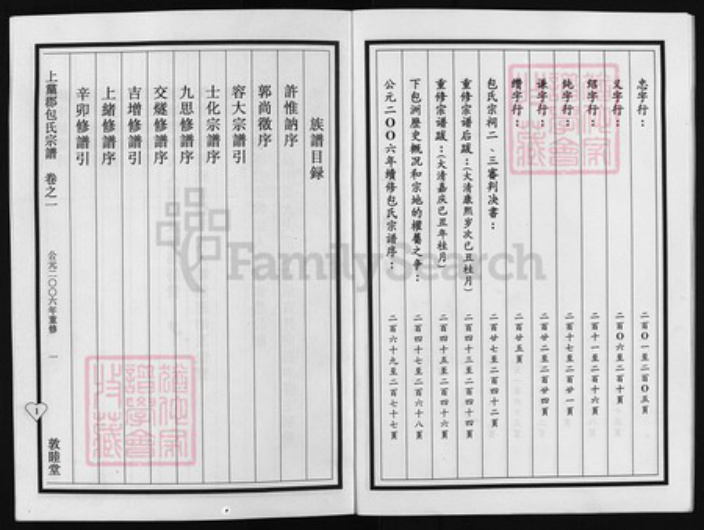 忠字行：二百〇一至二百〇五頁
义字行：二百〇六至二百十頁
紹字行：二百十一至二百十六頁
純字行：二百十七至二百廿一頁
谦字行：二百廿二至二百廿四頁
缵字行：二百廿五頁
包氏宗祠二、三審判决書：二百廿七至二百四十二頁
重修宗谱后跋：(大清康熙岁次己丑桂月)二百四十三至二百四十四頁
重修宗谱跋：(大清嘉庆己丑年桂月)二百四十五至二百四十六頁
下包洲歷史概况和宗地的權屬之争：二百四十七至二百六十八頁
公元二〇〇六年續修包氏宗譜序：二百六十九至二百七十七頁
族譜目録
許惟訥序
郭尚徵序
容大宗譜引
士化宗譜序
九思修譜序
交燧修譜序
吉增修譜引
上緒修譜序
辛卯修譜引
上黨郡包氏宗譜 卷之一 公元二〇〇六年重修 一 敦睦堂
1
FamilySearch